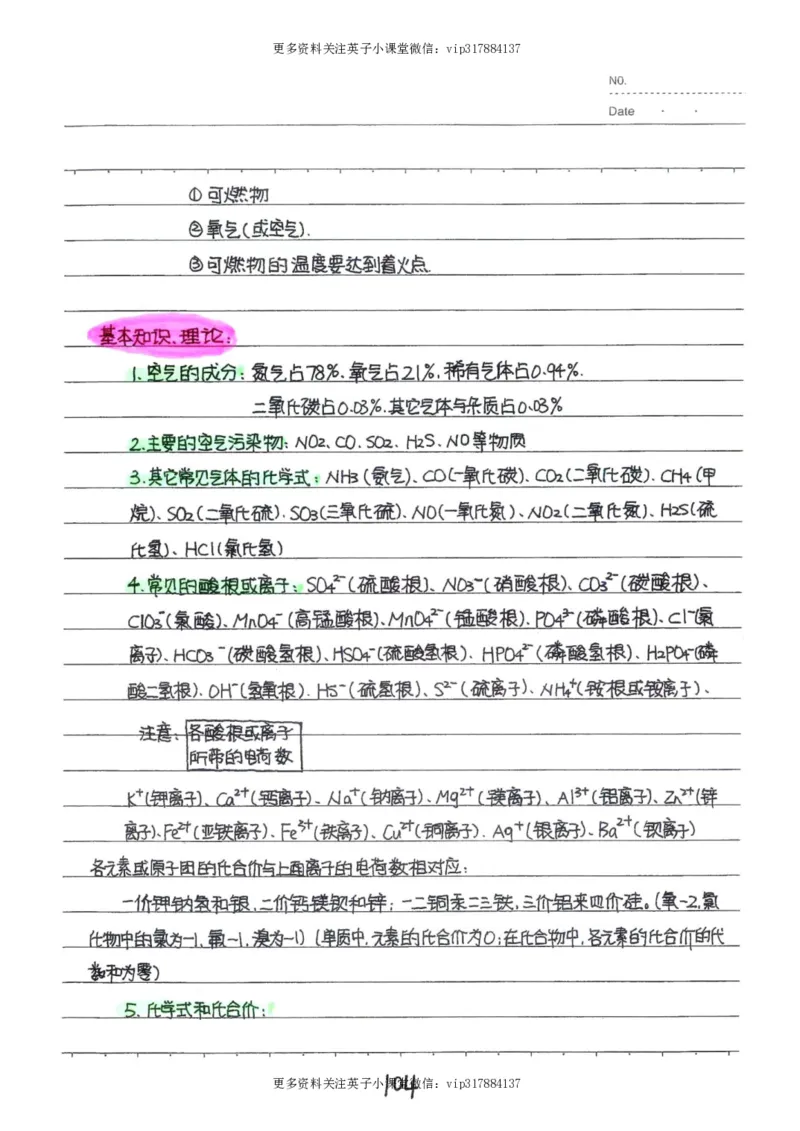 更多资料关注英子小课堂微信：vip317884137
NO.
Date · ·
①可燃物
②氧气(或空气).
③可燃物的温度要达到着火点.
基本知识、理论：
1.空气的成分：氮气占78%、氧气占21%、稀有气体占0.94%.
二氧化碳占0.03%.其它气体与杂质占0.03%
2.主要的空气污染物：NO2、CO、SO2、H2S、NO等物质
3.其它常见气体的化学式：NH3(氨气)、CO(一氧化碳)、CO2(二氧化碳)、CH4(甲
烷)、SO2(二氧化硫)、SO3(三氧化硫)、NO(一氧化氮)、NO2(二氧化氮)、H2S(硫
化氢)、HCl(氯化氢)
4.常见的酸根或离子：SO4²⁻(硫酸根)、NO3⁻(硝酸根)、CO3²⁻(碳酸根)、
ClO3⁻(氯酸)、MnO4⁻(高锰酸根)、MnO4²⁻(锰酸根)、PO4³⁻(磷酸根)、Cl⁻(氯
离子)、HCO3⁻(碳酸氢根)、HSO4⁻(硫酸氢根)、HPO4²⁻(磷酸氢根)、H2PO4⁻(磷
酸二氢根)、OH⁻(氢氧根)、HS⁻(硫氢根)、S²⁻(硫离子)、NH4⁺(铵根或铵离子)、
注意：各酸根或离子
所带的电荷数
K⁺(钾离子)、Ca²⁺(钙离子)、Na⁺(钠离子)、Mg²⁺(镁离子)、Al³⁺(铝离子)、Zn²⁺(锌
离子)、Fe²⁺(亚铁离子)、Fe³⁺(铁离子)、Cu²⁺(铜离子)、Ag⁺(银离子)、Ba²⁺(钡离子)
各元素或原子团的化合价与上面离子的电荷数相对应：
一价钾钠氢和银，二价钙镁钡和锌；一二铜汞二三铁，三价铝来四价硅。(氧-2，氯
化物中的氯为-1，氟-1，溴为-1)(单质中，元素的化合价为0；在化合物中，各元素的化合价的代
数和为零)
5、化学式和化合价：
更多资料关注英子小课堂微信：vip317884137
104